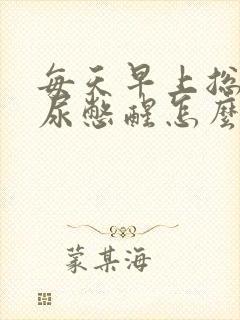 每天早上总
尿憋醒怎麼
蒙某海